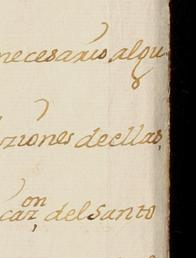 necesario, algu
ziones de ellas,
caz,on del Santo